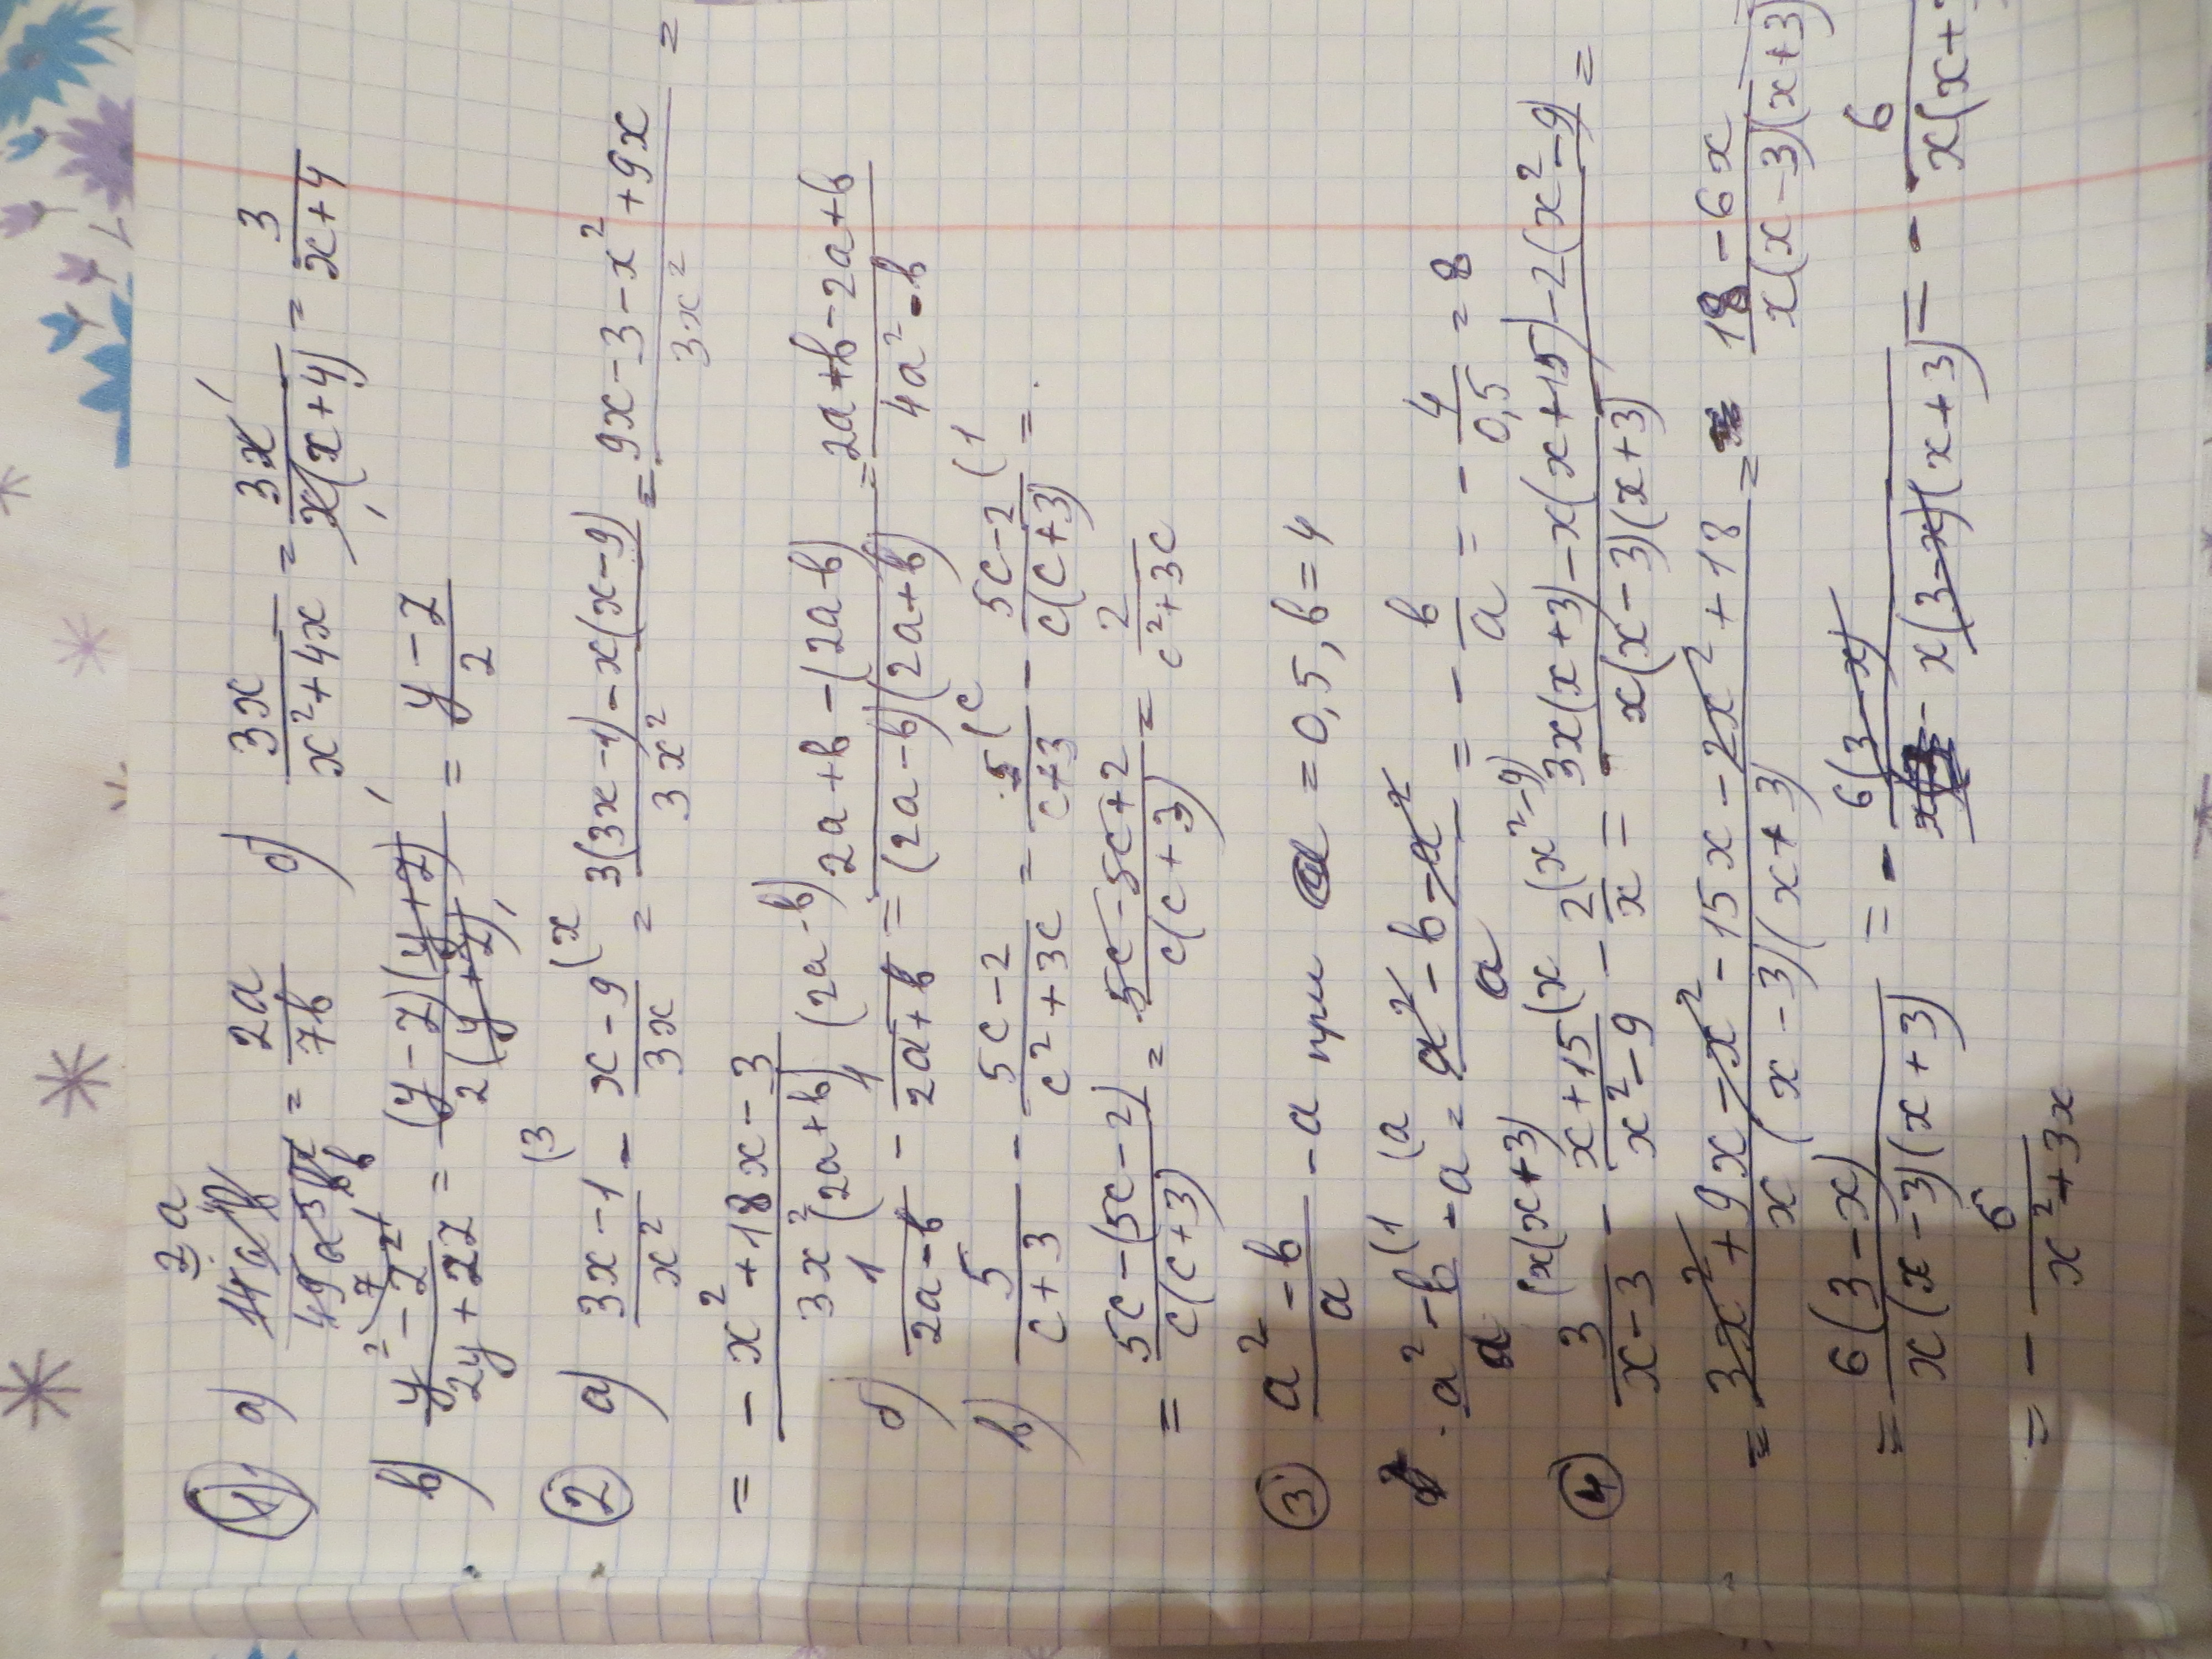 ① а) 14a⁴b / 49a³b² = 2a / 7b б) 3x / x²+4x = 3x / x(x+4) = 3 / x+4
в) y²-z² / 2y+2z = (y-z)(y+z) / 2(y+z) = y-z / 2
② а) 3x-1 / x² (3 - x-9 / 3x (x = 3(3x-1)-x(x-9) / 3x² = 9x-3-x²+9x / 3x² =
= -x²+18x-3 / 3x²
б) 1 / 2a-b (2a+b) - 1 / 2a+b (2a-b) = 2a+b-(2a-b) / (2a-b)(2a+b) = 2a+b-2a+b / 4a²-b
в) 5 / c+3 - 5c-2 / c²+3c = 5 / c+3 (c - 5c-2 / c(c+3) (1 =
= 5c-(5c-2) / c(c+3) = 5c-5c+2 / c(c+3) = 2 / c²+3c
③ a²-b / a - a при a = 0,5, b=4
a²-b / a (1 - a (a = a²-b-a² / a = - b / a = - 4 / 0,5 = 8
④ 3 / x-3 (x(x+3) - x+15 / x²-9 (x - 2 / x (x²-9) = 3x(x+3)-x(x+15)-2(x²-9) / x(x-3)(x+3) =
= 3x²+9x-x²-15x-2x²+18 / x(x-3)(x+3) = 18-6x / x(x-3)(x+3)
= 6(3-x) / x(x-3)(x+3) = - 6(3-x) / x(3-x)(x+3) = - 6 / x(x+
= - 6 / x²+3x